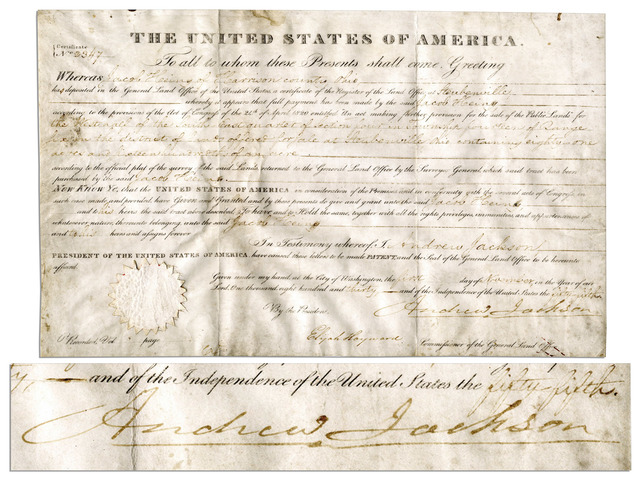 THE UNITED STATES OF AMERICA.
Certificate
No. 3347
To all to whom these Presents shall come, Greeting
Whereas Jacob of Harrison county Ohio
has deposited in the General Land Office of the United States a certificate of the Register of the Land Office at Steubenville
whereby it appears that full payment has been made by the said Jacob
according to the provisions of the Act of Congress of the 24th of April 1820 entitled An act making further provision for the sale of the Public Lands for
the quarter of section in township of Range
in the district of Lands offered for sale at Steubenville Ohio containing eighty one
acres and hundredths of an acre
according to the official plat of the survey of the said Lands returned to the General Land Office by the Surveyor General which said tract has been
purchased by the said Jacob
NOW KNOW Ye, that the UNITED STATES OF AMERICA in consideration of the Premises and in conformity with the several acts of Congress in
such case made and provided have Given and Granted and by these presents do give and grant unto the said Jacob
and to his heirs the said tract above described To have and to Hold the same, together with all the rights privileges immunities and appurtenances of
whatsoever nature, thereunto belonging unto the said Jacob
and to his heirs and assigns forever
In Testimony whereof I, Andrew Jackson
PRESIDENT OF THE UNITED STATES OF AMERICA have caused these letters to be made PATENT and the Seal of the General Land Office to be hereunto
affixed.
Given under my hand at the City of Washington, the day of November in the Year of our
Lord One thousand eight hundred and thirty and of the Independence of the United States the fifty fifth
By the President
Andrew Jackson
Elijah Hayward
Commissioner of the General Land Office
Recorded, Vol page
and of the Independence of the United States the fifty fifth.
Andrew Jackson